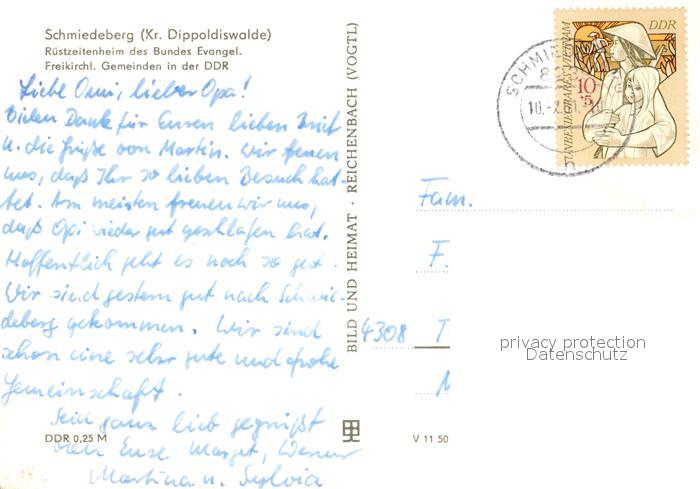 Schmiedeberg (Kr. Dippoldiswalde)
Rüstzeitenheim des Bundes Evangel.
Freikirchl. Gemeinden in der DDR
Liebe Omi, lieber Opa!
Vielen Dank für Euren lieben Brief
u. die Grüße von Martin. Wir freuen
uns, daß Ihr so lieben Besuch hat-
tet. Am meisten freuen wir uns,
daß Opi wieder gut geschlafen hat.
Hoffentlich geht es noch so gut.
Wir sind gestern gut nach Schmie-
deberg gekommen. Wir sind
schon eine sehr gute und frohe
Gemeinschaft.
Seid ganz lieb gegrüßt
von Eure Margot, Werner
Martina u. Sylvia
DDR 0,25 M
BILD UND HEIMAT · REICHENBACH (VOGTL)
V 11 50
DDR
10+5
UNBESIEGBARES VIETNAM
Fam.
F.
4308 T
privacy protection
Datenschutz